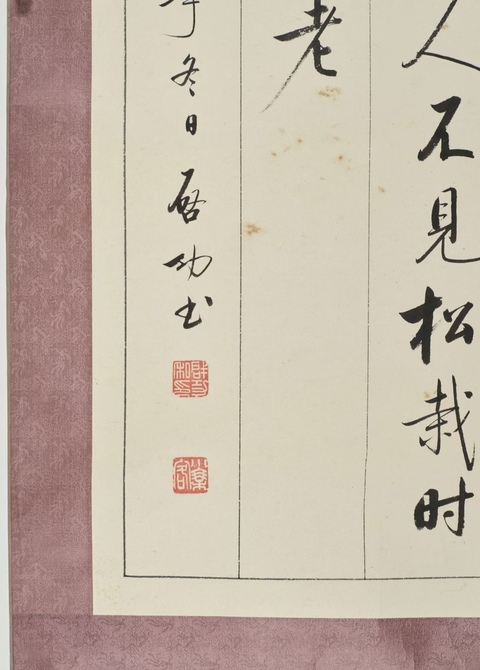 人不見松栽时
老
冬日啓功书